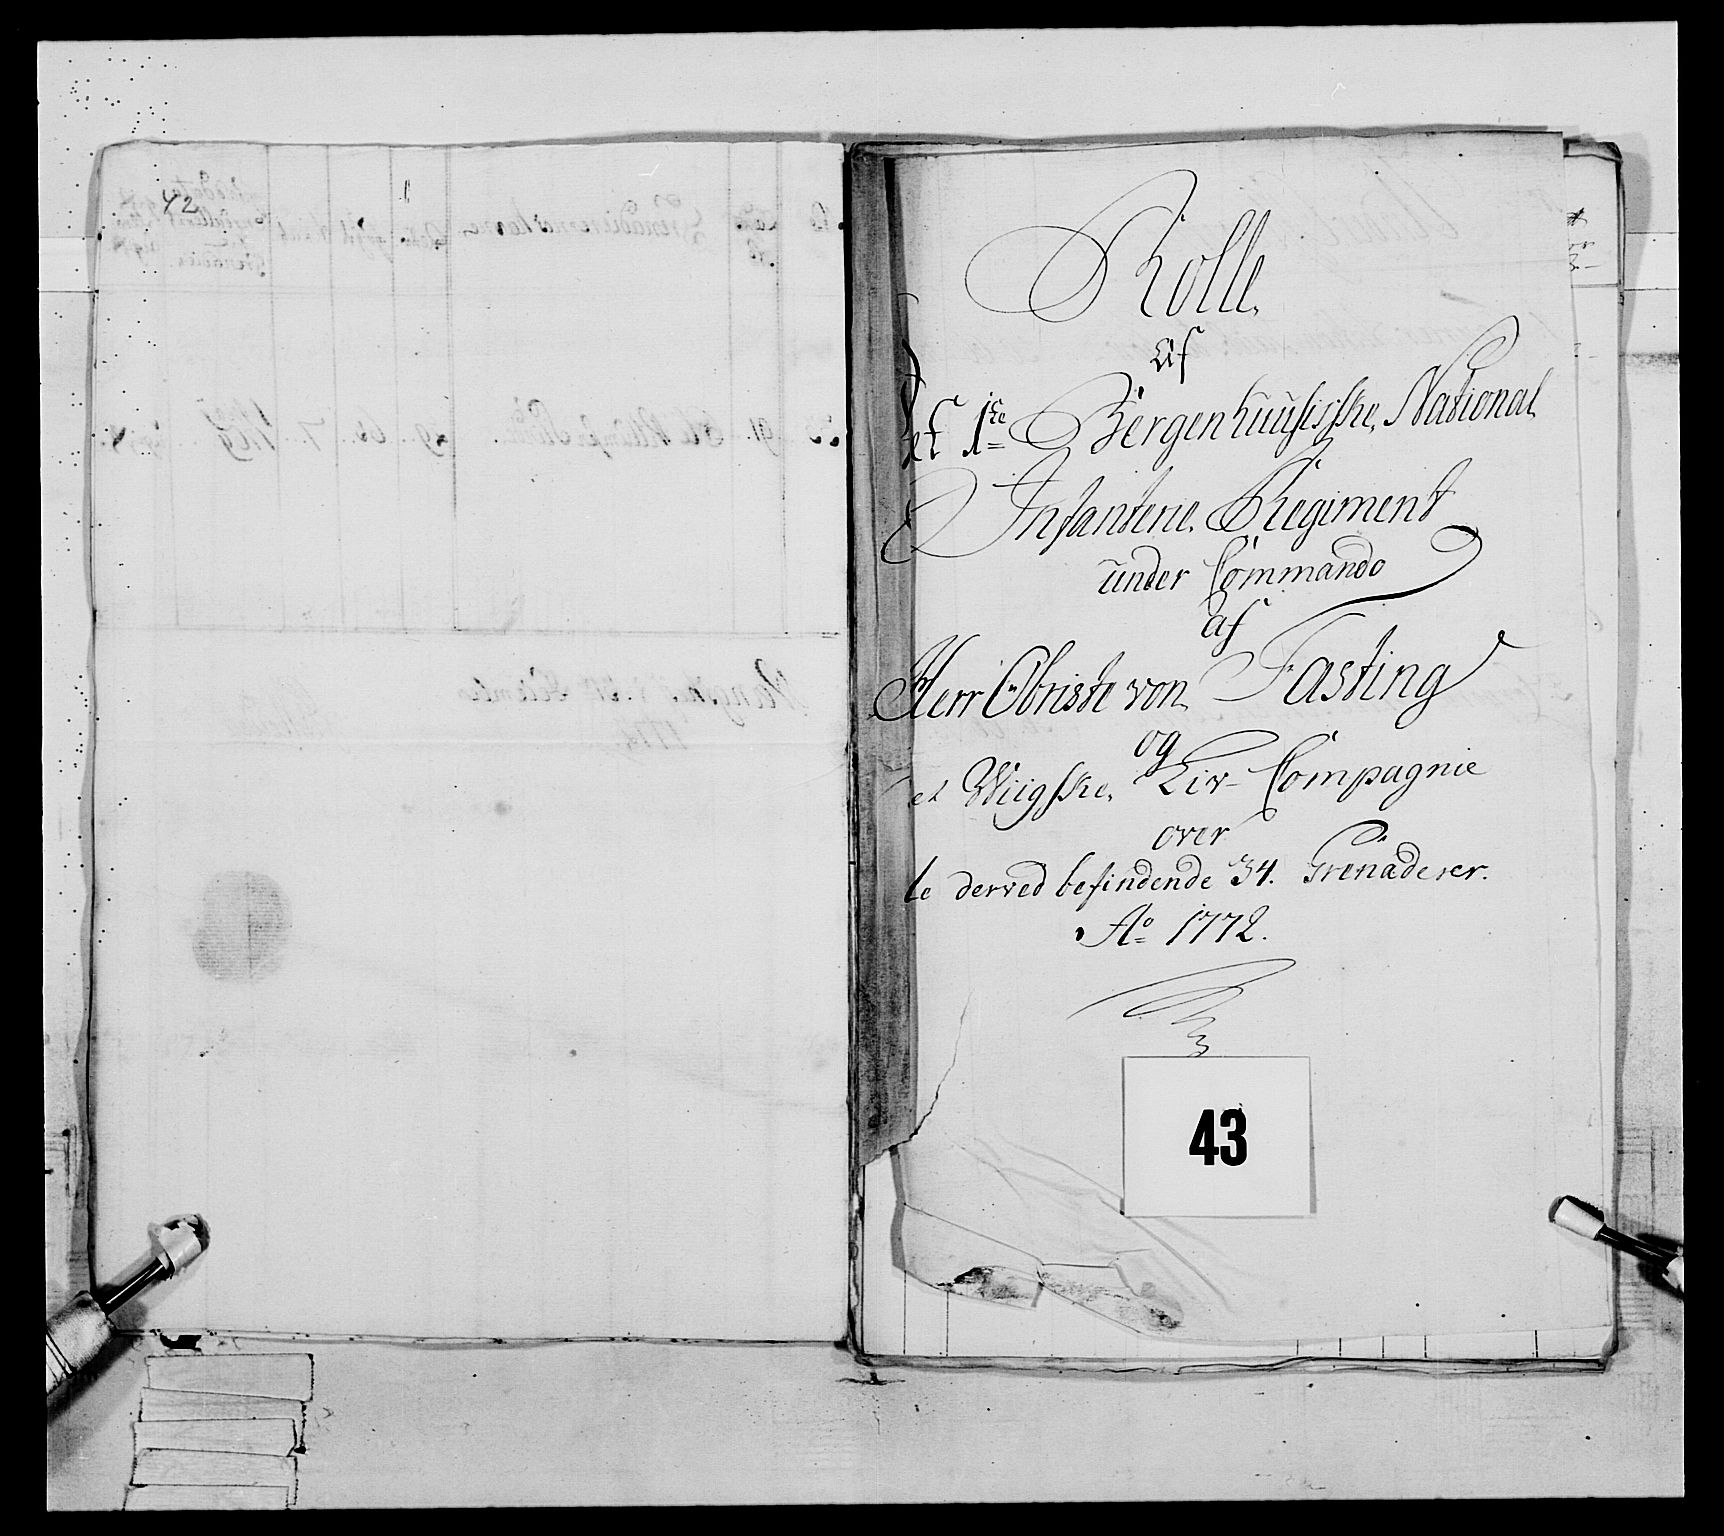 42
Rolle
af
det 1ste Bergenhuusiske National
Infanterie Regiment
under Commando
af
Herr Obriste von Fasting
og
et Wiigske Liv-Compagnie
over
le derved befindende 34. Grenaderer.
Ao 1772.
43